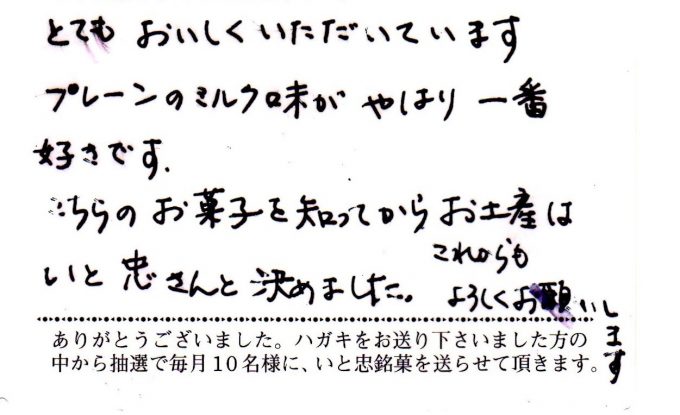 とても おいしくいただいています
プレーンのミルク味が やはり 一番
好きです.
こちらの お菓子を知ってから お土産は
いと忠さんと 決めました。
これからも
よろしくお願いします
ありがとうございました。ハガキをお送り下さいました方の
中から抽選で毎月10名様に、いと忠銘菓を送らせて頂きます。